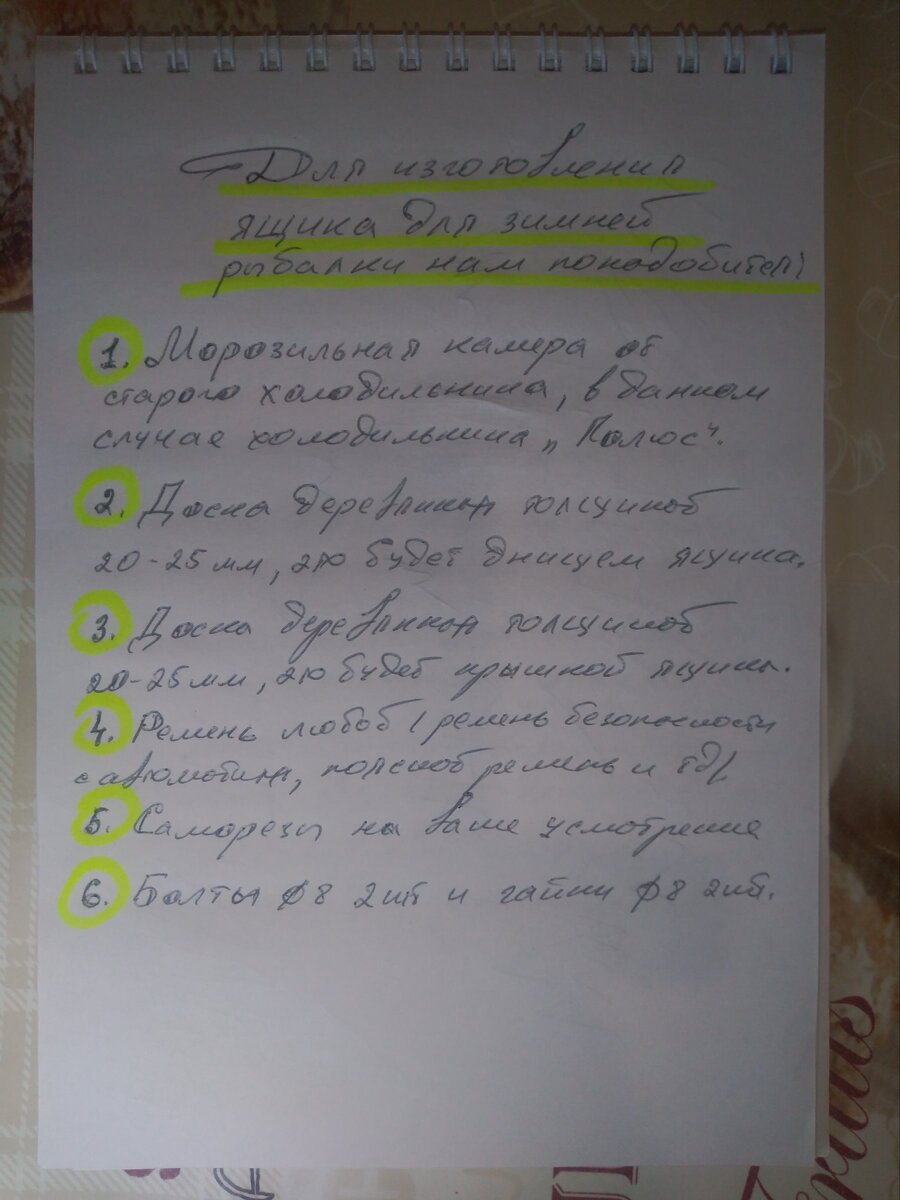 Для изготовления
ящика для зимней
рыбалки нам понадобится:
1. Морозильная камера от
старого холодильника, в данном
случае холодильника „Полюс“.
2. Доска деревянная толщиной
20-25 мм, это будет днищем ящика.
3. Доска деревянная толщиной
20-25 мм, это будет крышкой ящика.
4. Ремень любой (ремень безопасности
с автомобиля, поясной ремень и тд)
5. Саморезы на ваше усмотрение
6. Болты ⌀8 2шт и гайки ⌀8 2шт.